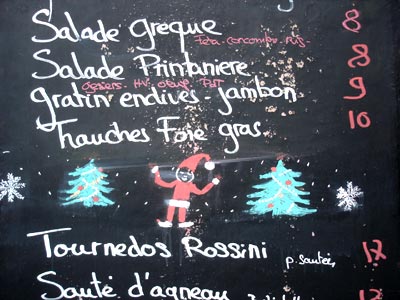 Salade Greque 8
Feta. concombre. ris
Salade Printaniere 8
gesiers. HV. oeuf PdT
gratin endives. jambon 9
Tranches Foie gras 10
Tournedos Rossini p. sautées 17
Sauté d'agneau